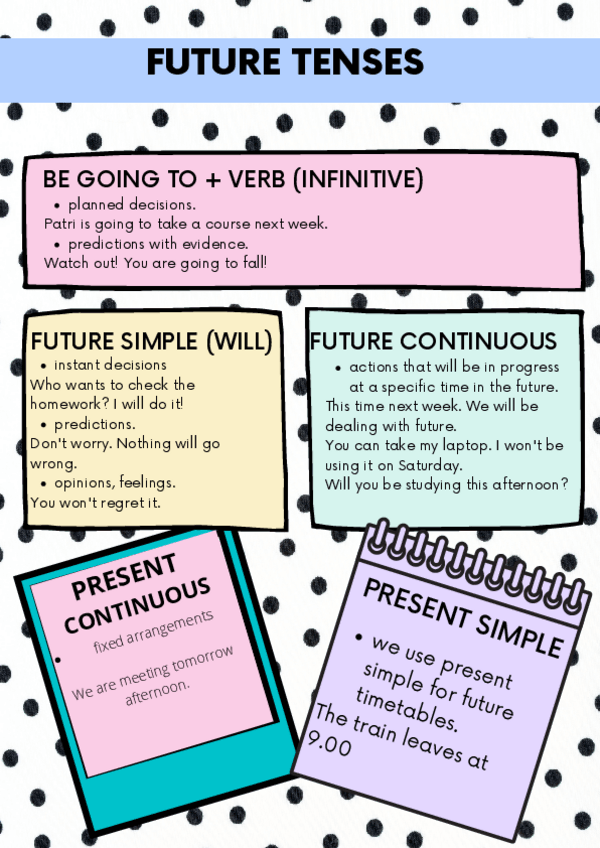 FUTURE TENSES
BE GOING TO + VERB (INFINITIVE)
• planned decisions.
Patri is going to take a course next week.
• predictions with evidence.
Watch out! You are going to fall!
FUTURE SIMPLE (WILL)
• instant decisions
Who wants to check the
homework? I will do it!
• predictions.
Don't worry. Nothing will go
wrong.
• opinions, feelings.
You won't regret it.
FUTURE CONTINUOUS
• actions that will be in progress
at a specific time in the future.
This time next week. We will be
dealing with future.
You can take my laptop. I won't be
using it on Saturday.
Will you be studying this afternoon?
PRESENT
CONTINUOUS
• fixed arrangements
We are meeting tomorrow
afternoon.
PRESENT SIMPLE
• we use present
simple for future
timetables.
The train leaves at
9.00